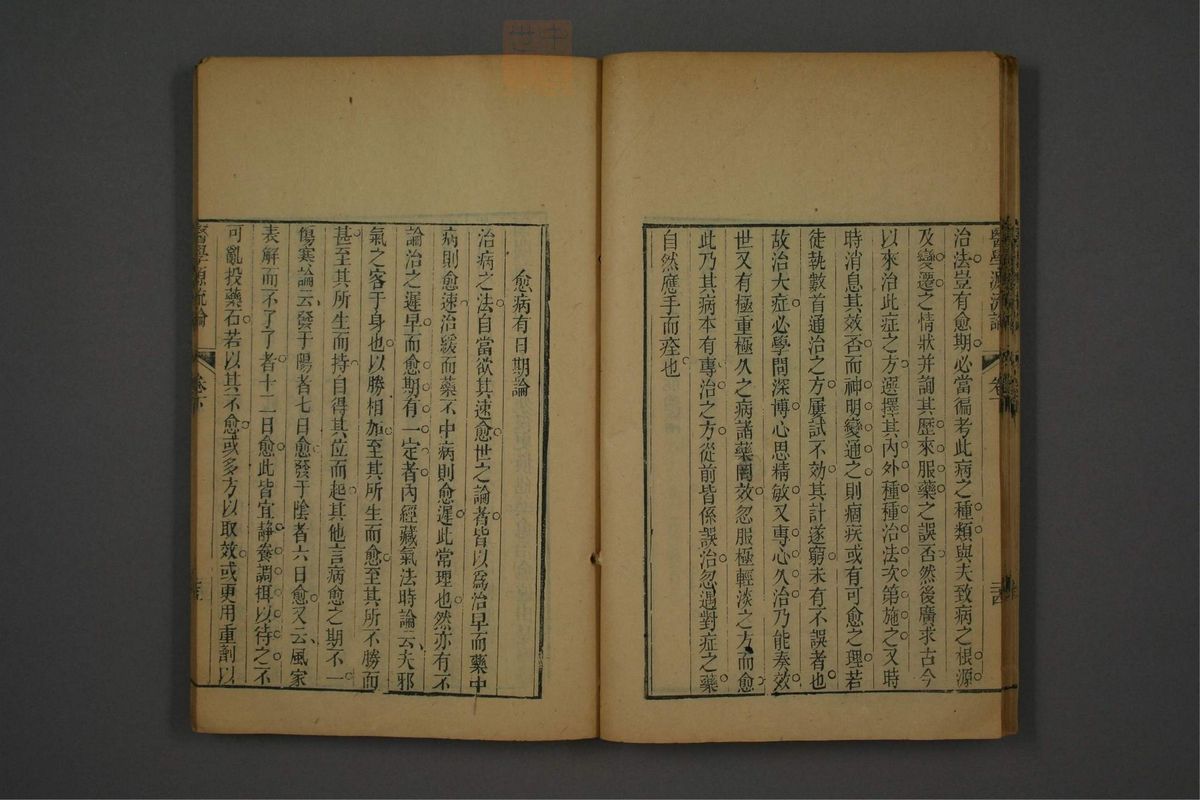 治法豈有愈期必當徧考此病之種類與夫致病之根源
及變遷之情狀并詢其歷來服藥之誤否然後廣求古今
以來治此症之方選擇其內外種種治法次第施之又時
時消息其效否而神明變通之則痼疾或有可愈之理若
徒執數首通治之方屢試不效其計遂窮未有不誤者也
故治大症必學問深博心思精敏又專心久治乃能奏效
世又有極重極久之病諸藥罔效忽服極輕淡之方而愈
此乃其病本有專治之方從前皆係誤治忽遇對症之藥
自然應手而痊也
愈病有日期論
治病之法自當欲其速愈世之論者皆以為治早而藥中
病則愈速治緩而藥不中病則愈遲此常理也然亦有不
論治之遲早而愈期有一定者內經藏氣法時論云夫邪
氣之客于身也以勝相加至其所生而愈至其所不勝而
甚至其所生而持自得其位而起其他言病愈之期不一
傷寒論云發于陽者七日愈發于陰者六日愈又云風家
表解而不了了者十二日愈此皆宜靜養調攝以待之不
可亂投藥石若以其不愈或多方以取效或更用重劑以
醫學源流論
卷下